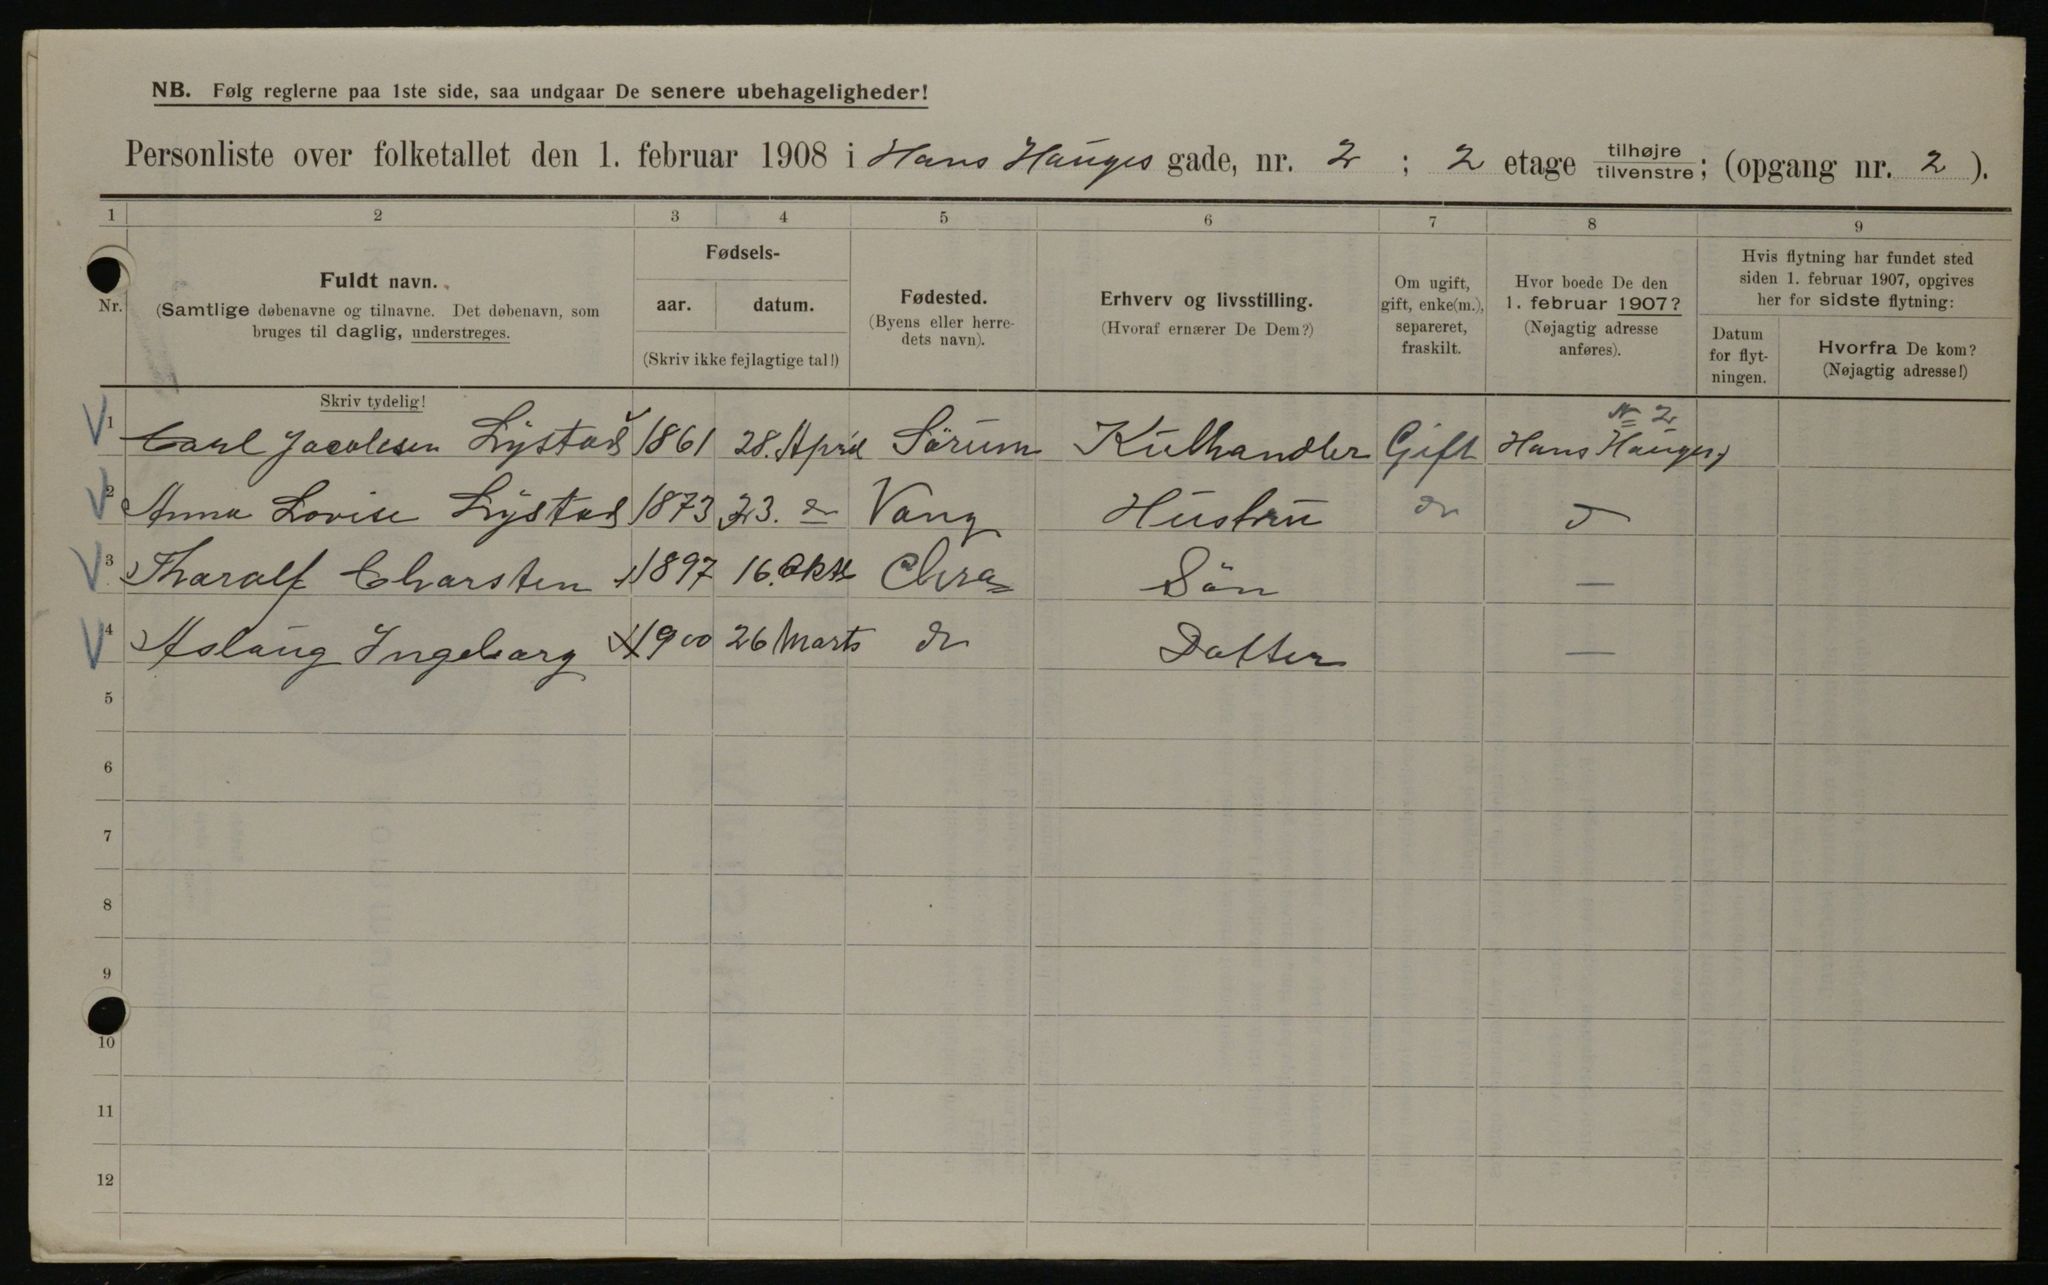 NB. Følg reglerne paa 1ste side, saa undgaar De senere ubehageligheder!
Personliste over folketallet den 1. februar 1908 i Hans Hauges gade, nr. 2 ; 2 etage tilhøjre / tilvenstre ; (opgang nr. 2 ).
1 2 3 4 5 6 7 8 9
Nr.
Fuldt navn.
(Samtlige døbenavne og tilnavne. Det døbenavn, som
bruges til daglig, understreges.
Skriv tydelig!
Fødsels-
aar. datum.
(Skriv ikke fejlagtige tal!)
Fødested.
(Byens eller herre-
dets navn).
Erhverv og livsstilling.
(Hvoraf ernærer De Dem?)
Om ugift,
gift, enke(m.),
separeret,
fraskilt.
Hvor boede De den
1. februar 1907?
(Nøjagtig adresse
anføres).
Hvis flytning har fundet sted
siden 1. februar 1907, opgives
her for sidste flytning:
Datum
for flyt-
ningen.
Hvorfra De kom?
(Nøjagtig adresse!)
N 2
1 Carl Jacobsen Lystad 1861 28. April Sörum Kulhandler Gift Hans Hauges
2 Anna Lovise Lystad 1873 23. do Vang Hustru do d
3 Tharalf Charsten 1897 16. Okt Chra Sön —
4 Aslaug Ingeborg 1900 26 Marts do Datter —
5
6
7
8
9
10
11
12